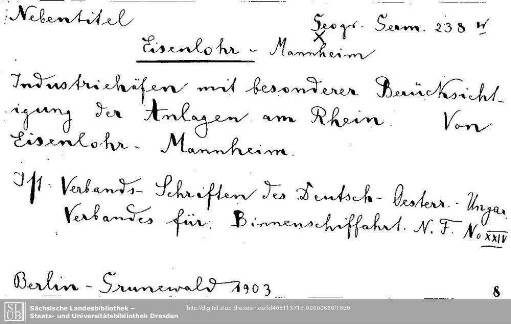 Nebentitel
Geogr. Germ. 238
Eisenlohr - Mannheim
Industriehäfen mit besonderer Berücksicht-
igung der Anlagen am Rhein. Von
Eisenlohr - Mannheim.
Ist: Verbands-Schriften des Deutsch-Oesterr.-Ungar.
Verbandes für Binnenschiffahrt. N. F. No XXIV
Berlin-Grunewald 1903
8
SLUB
Sächsische Landesbibliothek –
Staats- und Universitätsbibliothek Dresden